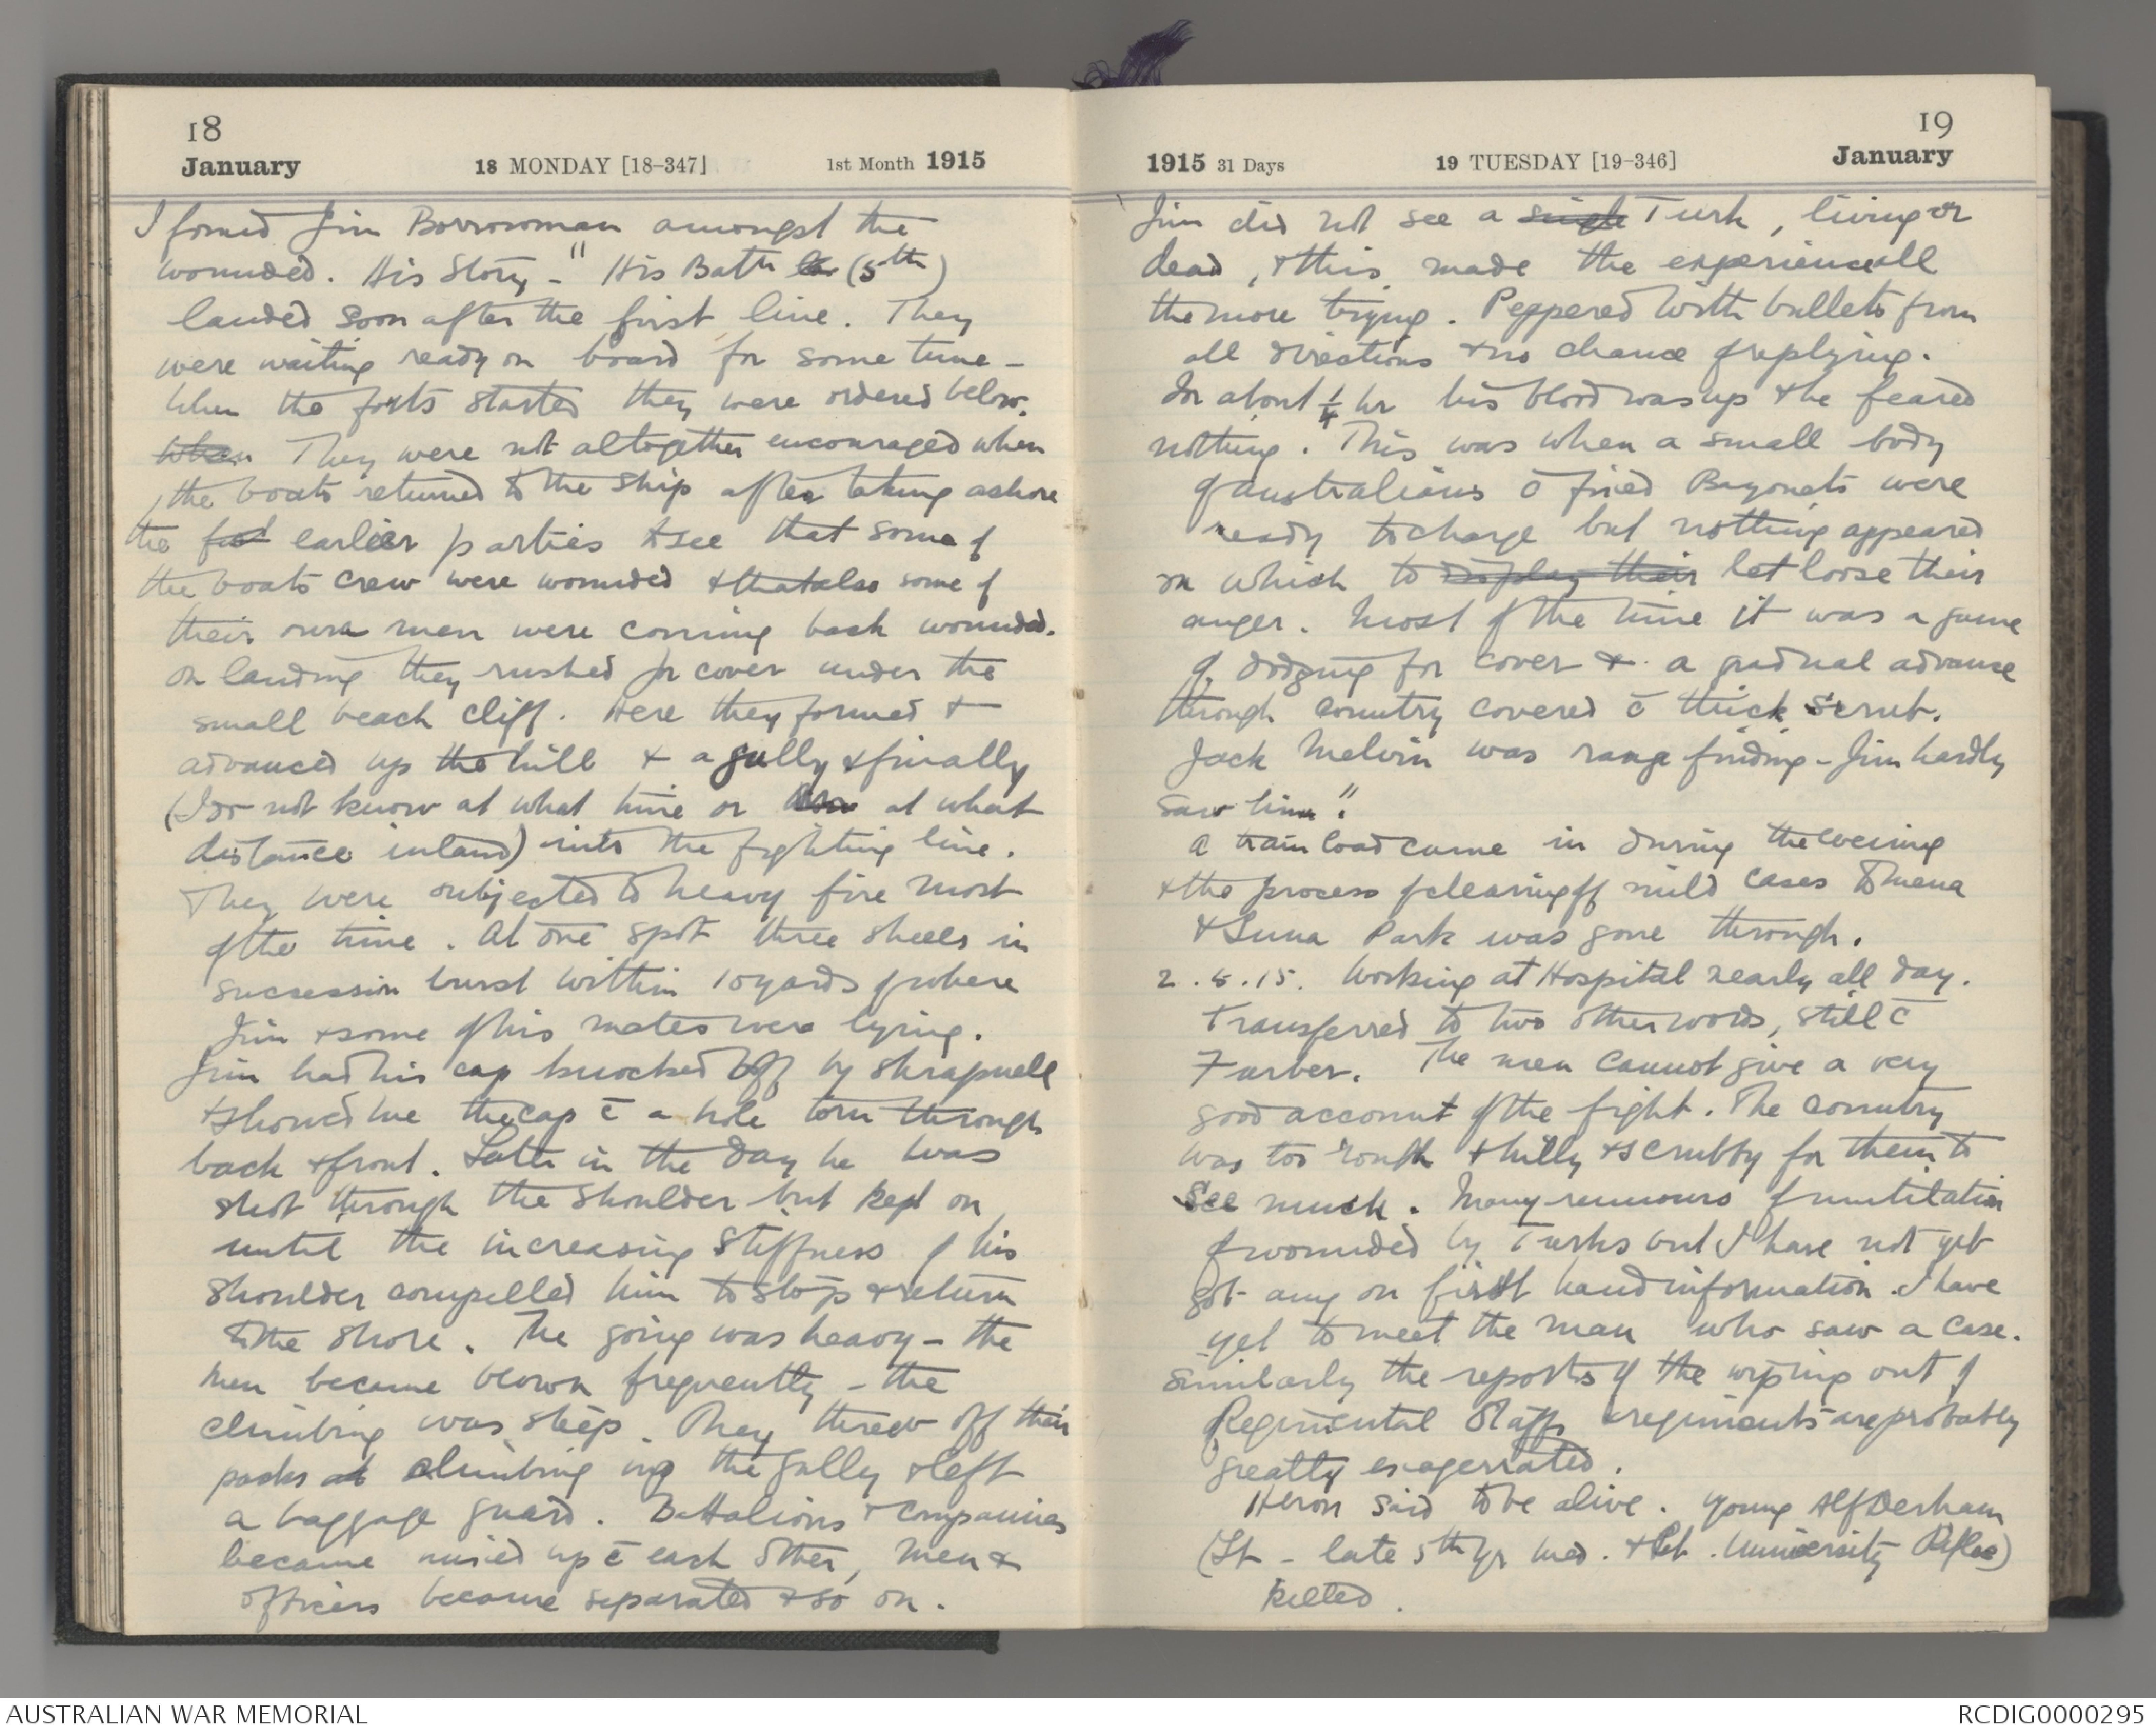 18
January 18 MONDAY [18-347] 1st Month 1915
I found Jim Borrowman amongst the
wounded. His Story - " His Battn (5th)
landed soon after the first line. They
were waiting ready on board for some time -
When the forts started they were ordered below.
when They were not altogether encouraged when
the boats returned to the ship after taking ashore
the first earlier parties to see that some of
the boats crew were wounded & that also some of
their own men were coming back wounded.
On landing they rushed for cover under the
small beach cliff. Here they formed &
advanced up the hill & a gully & finally
(I do not know at what time or at what
distance inland) into the fighting line.
They were subjected to heavy fire most
of the time. At one spot three shells in
succession burst within 10 yards of where
Jim & some of his mates were lying.
Jim had his cap knocked off by shrapnell
& showed me the cap c̄ a hole torn through
back & front. Later in the day he was
shot through the shoulder but kept on
until the increasing stiffness of his
shoulder compelled him to stop & return
to the shore. The going was heavy - the
men became blown frequently - the
climbing was steep. They threw off their
packs at climbing up the gully & left
a baggage guard. Battalions & Companies
became mixed up c̄ each other, men &
officers became separated & so on.
19
1915 31 Days 19 TUESDAY [19-346] January
Jim did not see a single Turk, living or
dead, & this made the experience all
the more trying. Peppered with bullets from
all directions & no chance of replying.
In about ¼ hr his blood was up & he feared
nothing. This was when a small body
of Australians c̄ fixed Bayonets were
ready to charge but nothing appeared
on which to display their let loose their
anger. Most of the time it was a game
of dodging for cover & a gradual advance
through country covered c̄ thick scrub.
Jack Melvin was range finding - Jim hardly
saw him".
A train load came in during the evening
& the process of clearing off mild cases to Mena
& Luna Park was gone through.
2.5.15. Working at Hospital nearly all day.
Transferred to two other wards, still c̄
Furber. The men cannot give a very
good account of the fight. The country
was too rough & hilly & scrubby for them to
see much. Many rumours of mutilation
of wounded by Turks but I have not yet
got any on first hand information. I have
yet to meet the man who saw a case.
Similarly the reports of the wiping out of
Regimental Staffs & regiments are probably
greatly exagerrated.
Heron said to be alive. Young Alf Derham
(Lt - late 5th yr Med. & University Rifles)
killed.
AUSTRALIAN WAR MEMORIAL RCDIG0000295